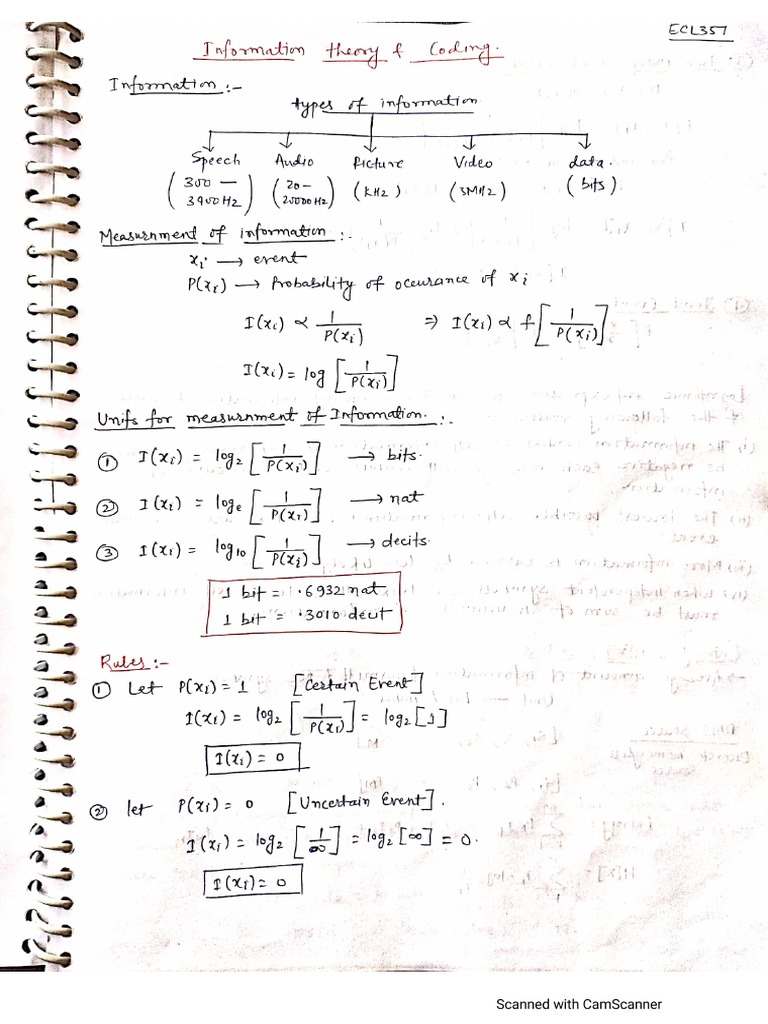 ECL357
Information theory & Coding.
Information :-
types of information
Speech Audio Picture Video data.
(300 – 3900 Hz) (20 – 20000 Hz) (KHz) (3MHz) (bits)
Measurnment of information :-
xi → event
P(xi) → Probability of occurance of xi
I(xi) ∝ 1/P(xi) ⇒ I(xi) ∝ f[1/P(xi)]
I(xi) = log [1/P(xi)]
Units for measurnment of Information. :-
① I(xi) = log2 [1/P(xi)] → bits.
② I(xi) = loge [1/P(xi)] → nat
③ I(xi) = log10 [1/P(xi)] → decits.
1 bit = .6932 nat
1 bit = .3010 decit
Rules :-
① Let P(xi) = 1 [Certain Event]
I(xi) = log2 [1/P(xi)] = log2 [1]
I(xi) = 0
② let P(xi) = 0 [Uncertain Event].
I(xi) = log2 [1/∞] = log2 [∞] = 0.
I(xi) = 0
Scanned with CamScanner